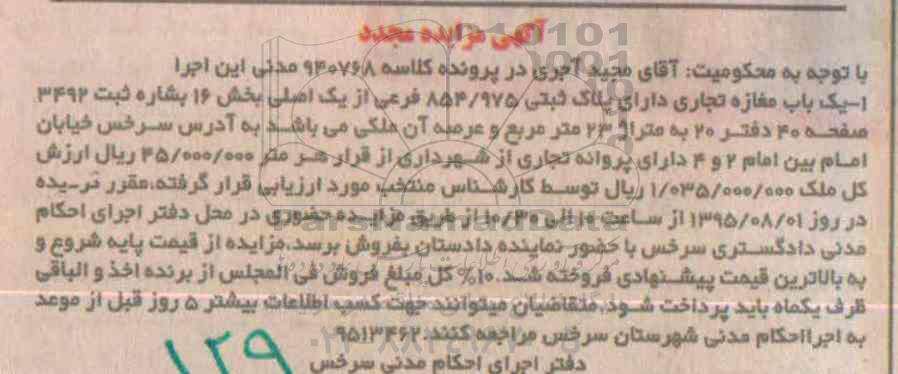 آگهی مزایده مجدد
با توجه به محکومیت: آقای مجید آجری در پرونده کلاسه ۹۴۰۷۶۸ مدنی این اجرا
۱-یک باب مغازه تجاری دارای پلاک ثبتی ۸۵۴/۹۷۵ فرعی از یک اصلی بخش ۱۶ بشاره ثبت ۳۴۹۲
صفحه ۴۰ دفتر ۲۰ به متراژ ۲۳ متر مربع و عرصه آن ملکی می باشد به آدرس سرخس خیابان
امام بین امام ۲ و ۴ دارای پروانه تجاری از شهرداری از قرار هر متر ۴۵/۰۰۰/۰۰۰ ریال ارزش
کل ملک ۱/۰۳۵/۰۰۰/۰۰۰ ریال توسط کارشناس منتخب مورد ارزیابی قرار گرفته،مقرر گردیده
در روز ۱۳۹۵/۰۸/۰۱ از ساعت ۱۰ الی ۱۰/۳۰ از طریق مزایده حضوری در محل دفتر اجرای احکام
مدنی دادگستری سرخس با حضور نماینده دادستان بفروش برسد.مزایده از قیمت پایه شروع و
به بالاترین قیمت پیشنهادی فروخته شد.۱۰% کل مبلغ فروش فی المجلس از برنده اخذ و الباقی
ظرف یکماه باید پرداخت شود.متقاضیان میتوانند جهت کسب اطلاعات بیشتر ۵ روز قبل از موعد
به اجرااحکام مدنی شهرستان سرخس مراجعه کنند.۹۵۱۳۴۶۲
دفتر اجرای احکام مدنی سرخس
۱۲۹
ParsNamadData